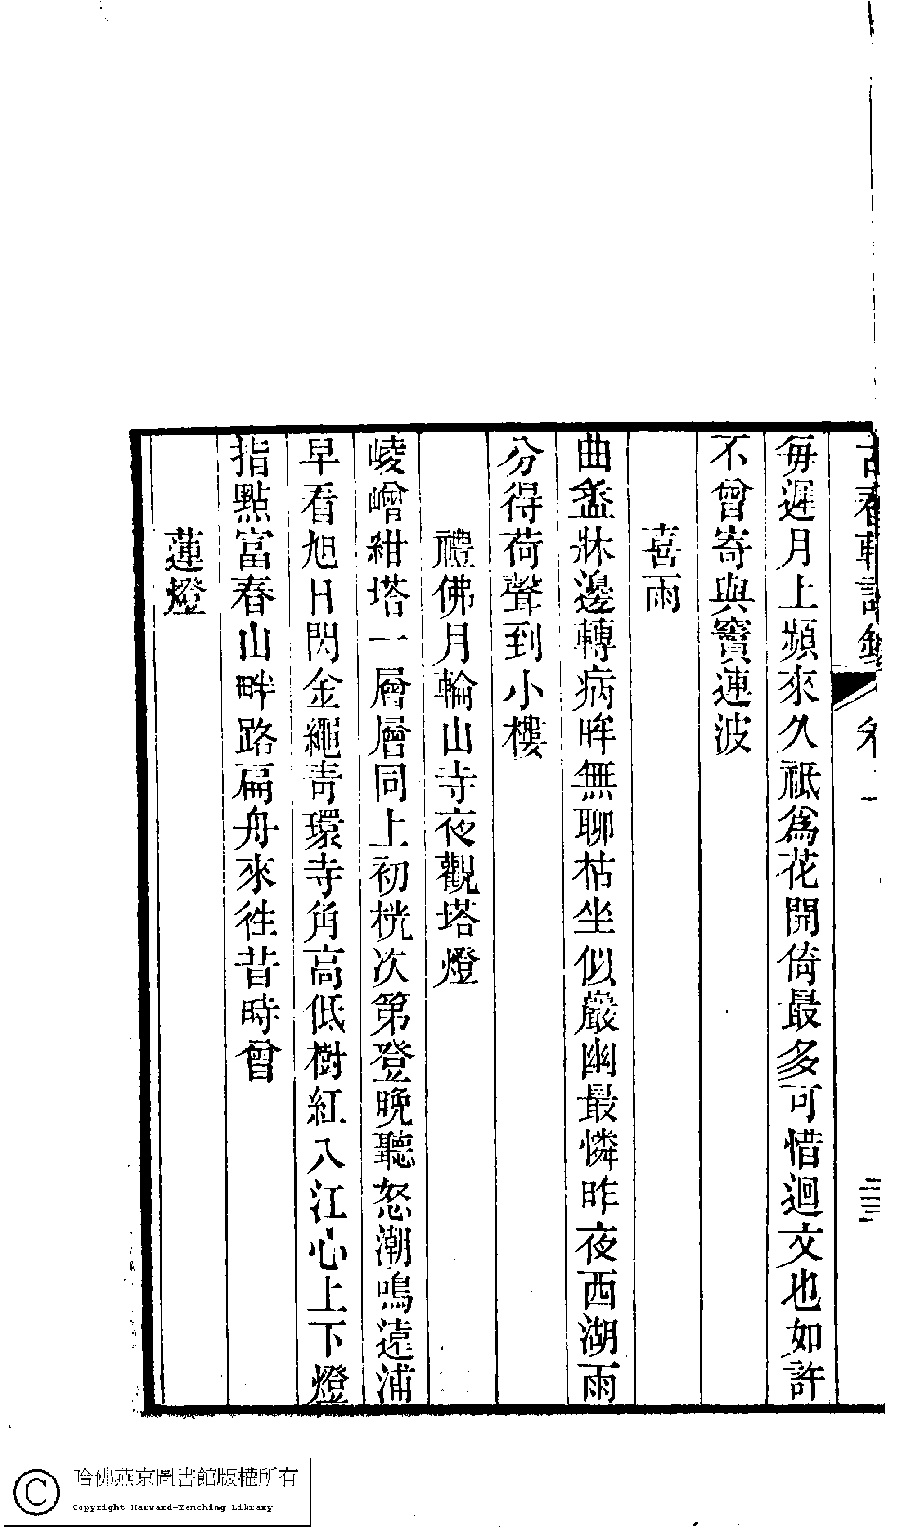 古春軒詩鈔 卷一 二三
每遲月上頻來久祗爲花開倚最多可惜迴文也如許
不曾寄與竇連波
喜雨
曲盝牀邊轉病眸無聊枯坐似嚴幽最憐昨夜西湖雨
分得荷聲到小樓
禮佛月輪山寺夜觀塔燈
崚嶒紺塔一層層同上初桄次第登晩聽怒潮鳴遠浦
早看旭日閃金繩靑環寺角高低樹紅入江心上下燈
指點富春山畔路扁舟來徃昔時曾
蓮燈
哈佛燕京圖書館版權所有
Copyright Harvard-Yenching Library